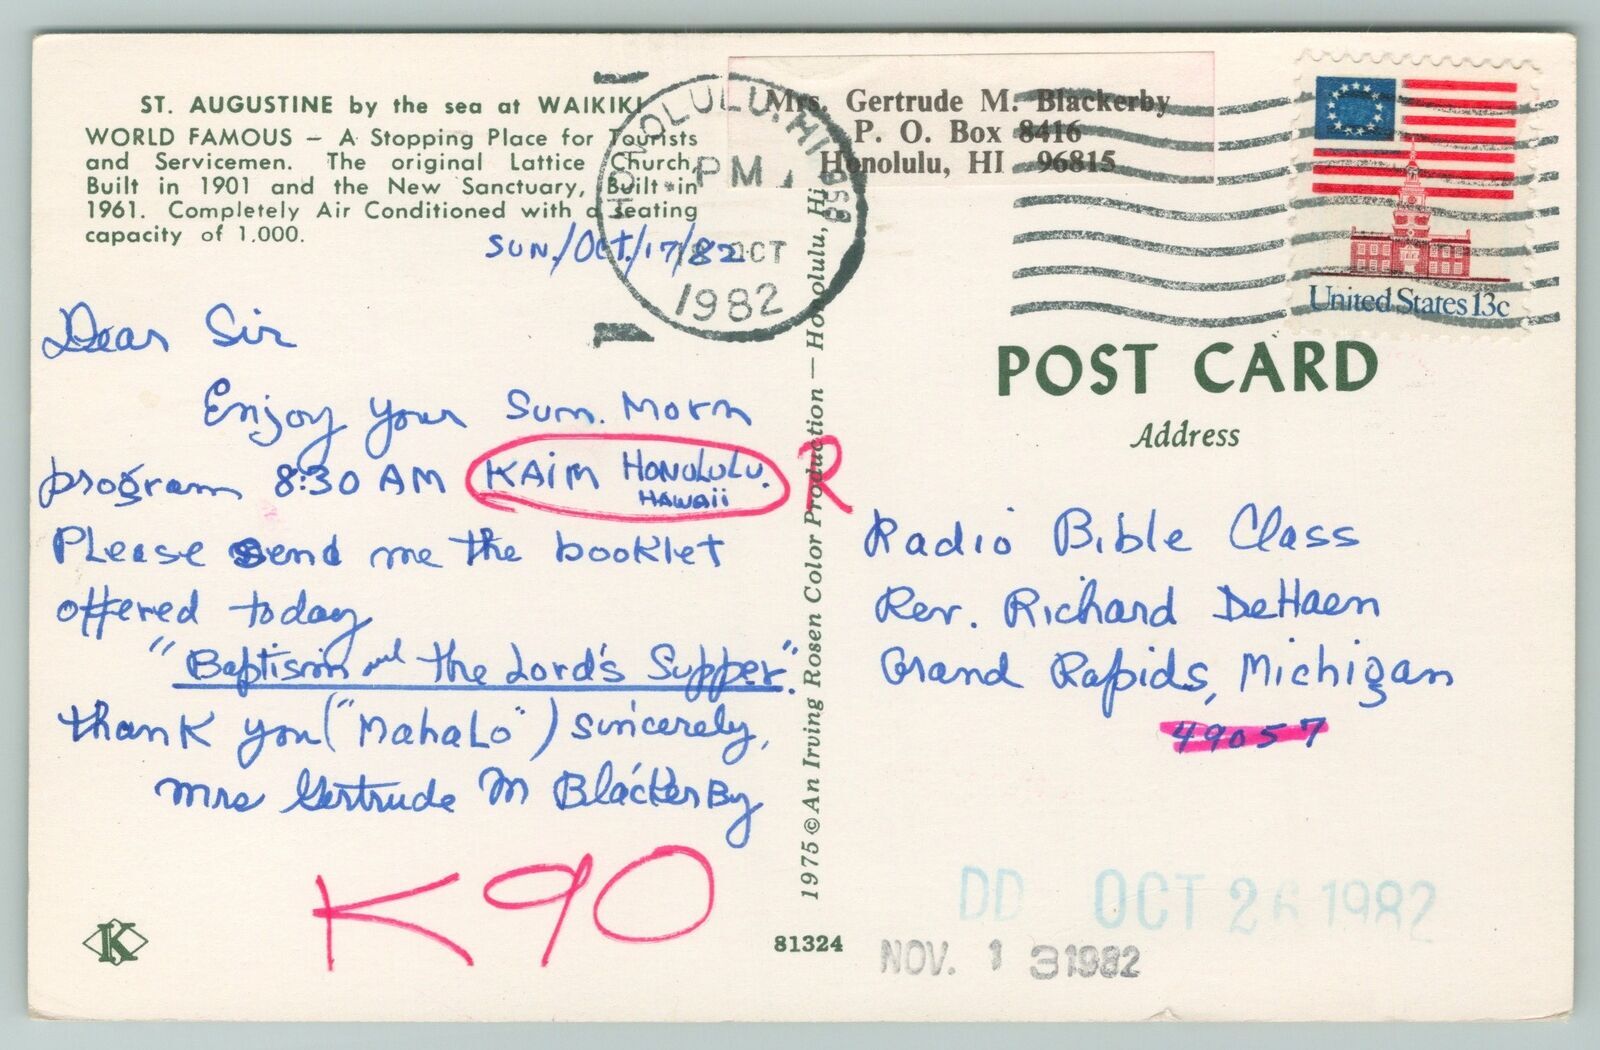 ST. AUGUSTINE by the sea at WAIKIKI
WORLD FAMOUS – A Stopping Place for Tourists
and Servicemen. The original Lattice Church,
Built in 1901 and the New Sanctuary, Built in
1961. Completely Air Conditioned with a seating
capacity of 1,000.
SUN./OCT./17/82
Dear Sir
Enjoy your Sun. Morn
program 8:30 AM KAIM HONOLULU.
HAWAII
Please send me the booklet
offered today
"Baptism and the Lord's Supper".
thank you ("Mahalo") sincerely,
Mrs Gertrude M Blackerby
K90
K
HONOLULU, HI 968
PM
18 OCT
1982
Mrs. Gertrude M. Blackerby
P. O. Box 8416
Honolulu, HI 96815
United States 13c
1975 © An Irving Rosen Color Production — Honolulu, Hi
81324
POST CARD
Address
R
Radio Bible Class
Rev. Richard DeHaen
Grand Rapids, Michigan
49057
DD OCT 26 1982
NOV. 1 3 1982